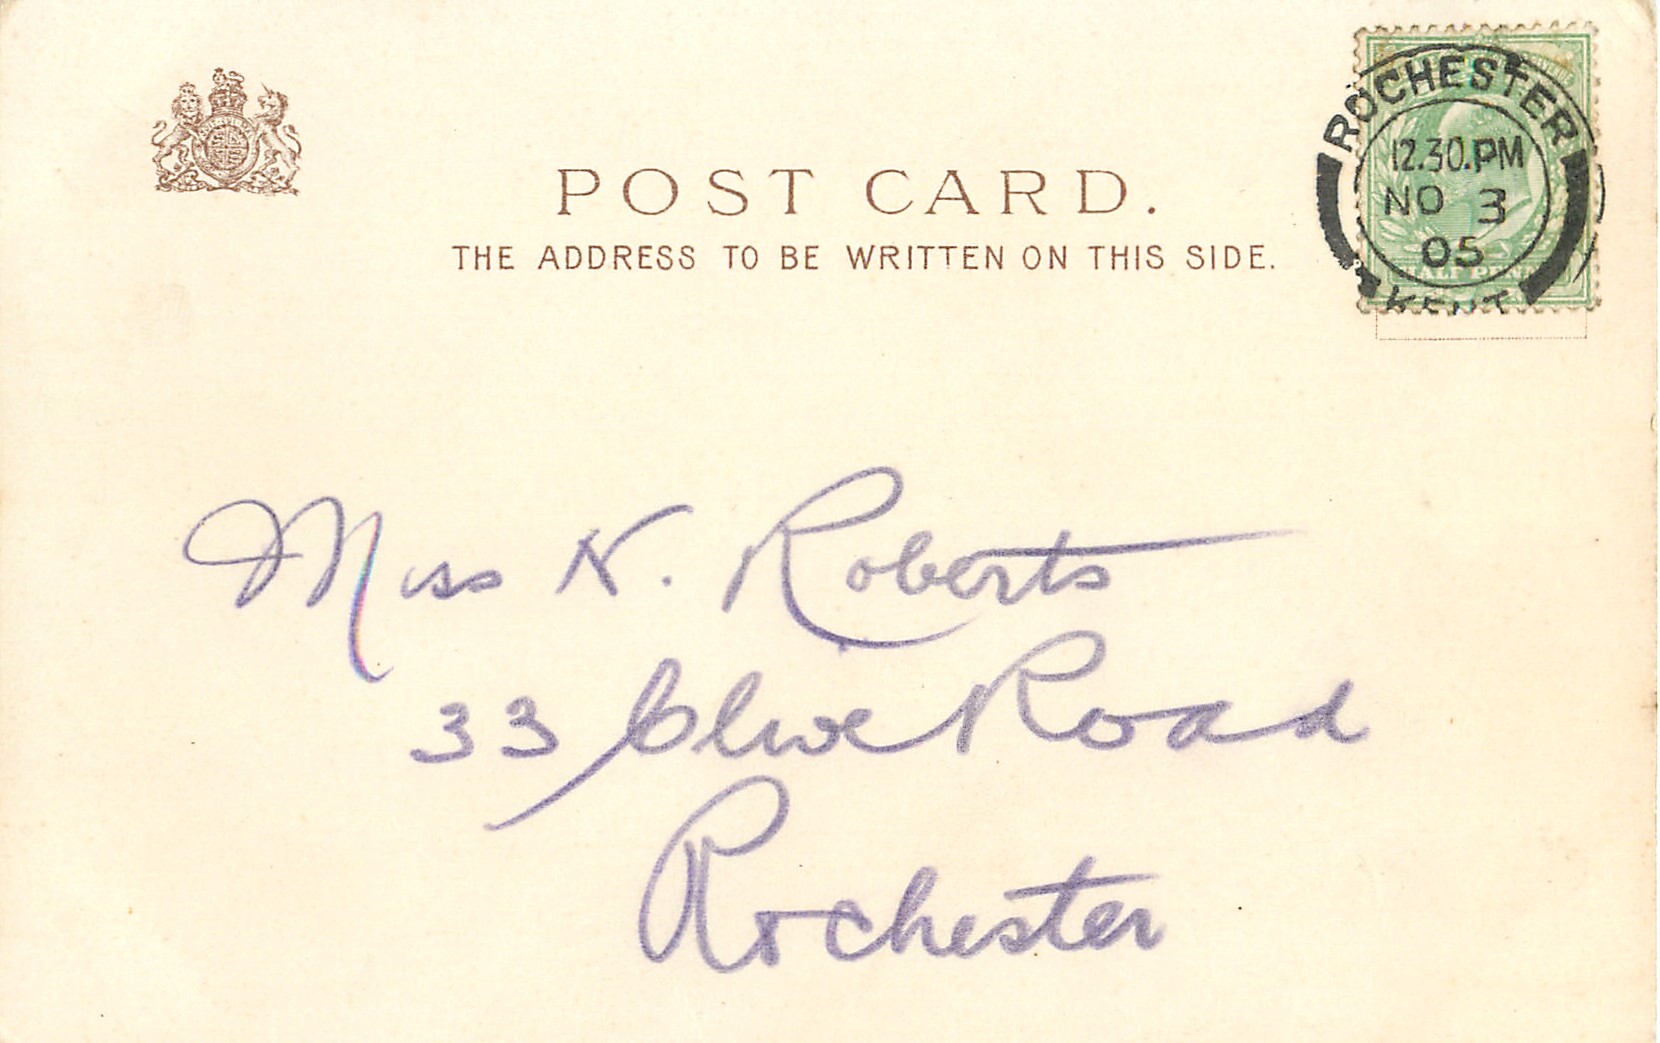 POST CARD.
THE ADDRESS TO BE WRITTEN ON THIS SIDE.
ROCHESTER
12.30.PM
NO 3
05
KENT
HALF PENNY
Miss N. Roberts
33 Clive Road
Rochester